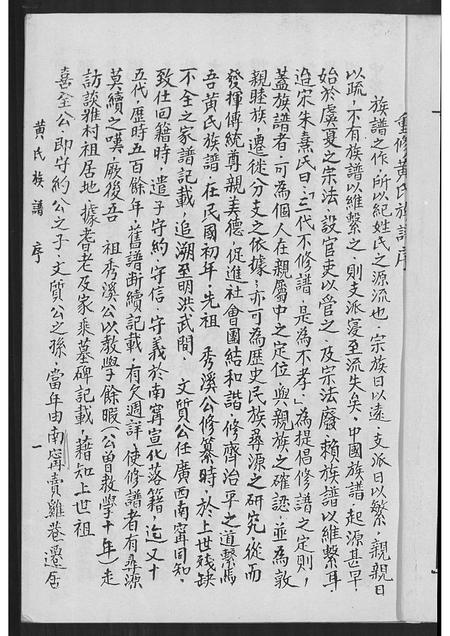 重修黃氏族譜序
族譜之作，所以紀姓氏之源流也，宗族日以遠，支派日以繁，親親日
以疏，不有族譜以維繫之，則支派寖至流失矣，中國族譜，起源甚早
始於虞夏之宗法，設官吏以管之，及宗法廢，賴族譜以維繫耳
迨宋朱熹氏曰，「三代不修譜，是為不孝」為提倡修譜之定則，
蓋族譜者，可為個人在親屬中之定位，與親族之確認，並為敦
親睦族，遷徙分支之依據，亦可為歷史民族尋源之研究，從而
發揮傳統尊親美德，促進社會團結和諧，修齊治平之道繫焉
吾黃氏族譜，在民國初年，先祖　秀溪公修纂時，於上世殘缺
不全之家譜記載，追溯至明洪武間　文質公任廣西南寧同知，
致仕回籍時，遣子守約，守信，守義於南寧宣化落籍，迄又十
五代，歷時五百餘年，舊譜断續記載，有欠週詳，使修譜者有尋源
莫續之嘆，厥後吾　祖秀溪公以教學餘暇（公曾教學十年）走
訪談雅村祖居地，據耆老及家乘墓碑記載，藉知上世祖
喜全公，即守約公之子，文質公之孫，當年由南寧賣雞巷遷居
黃氏族譜　序　一